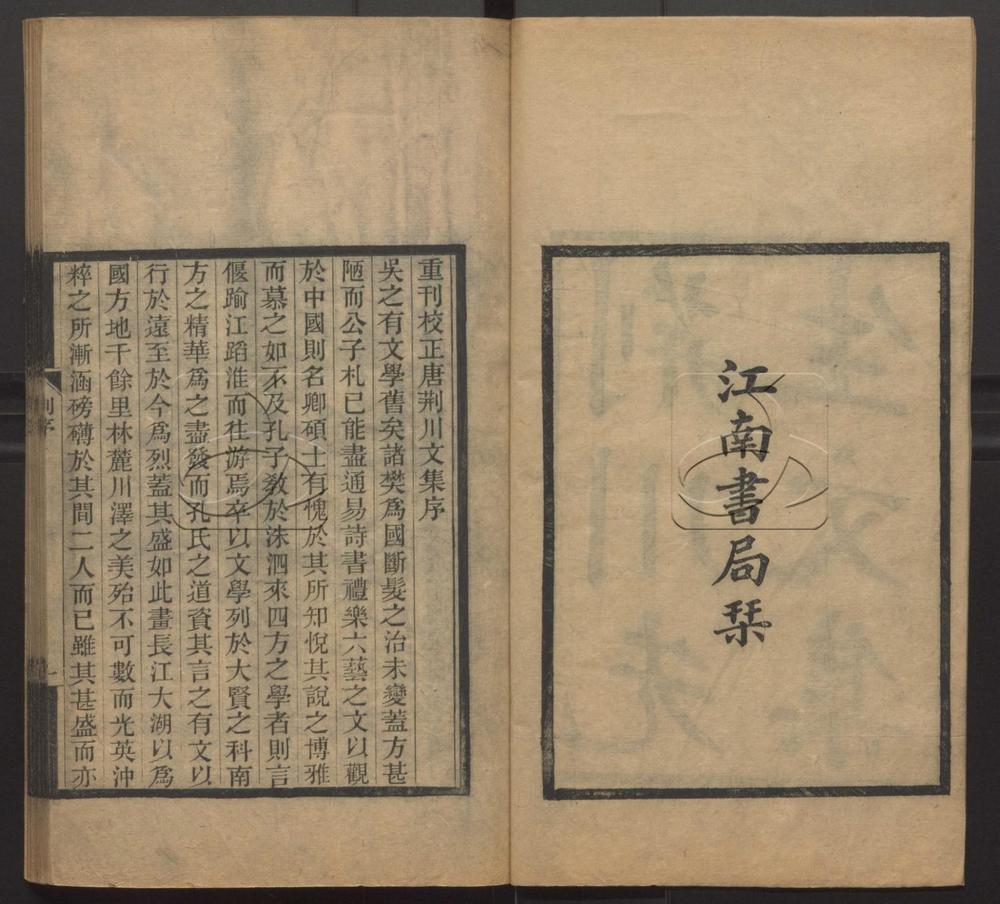 江南書局栞
重刊校正唐荆川文集序
吳之有文學舊矣諸樊爲國斷髮之治未變蓋方甚
陋而公子札已能盡通易詩書禮樂六藝之文以觀
於中國則名卿碩士有愧於其所知悅其說之博雅
而慕之如不及孔子敎於洙泗來四方之學者則言
偃踰江蹈淮而往游焉卒以文學列於大賢之科南
方之精華爲之盡發而孔氏之道資其言之有文以
行於遠至於今爲烈蓋其盛如此畫長江大湖以爲
國方地千餘里林麓川澤之美殆不可數而光英沖
粹之所漸涵磅礴於其間二人而已雖其甚盛而亦
序
一